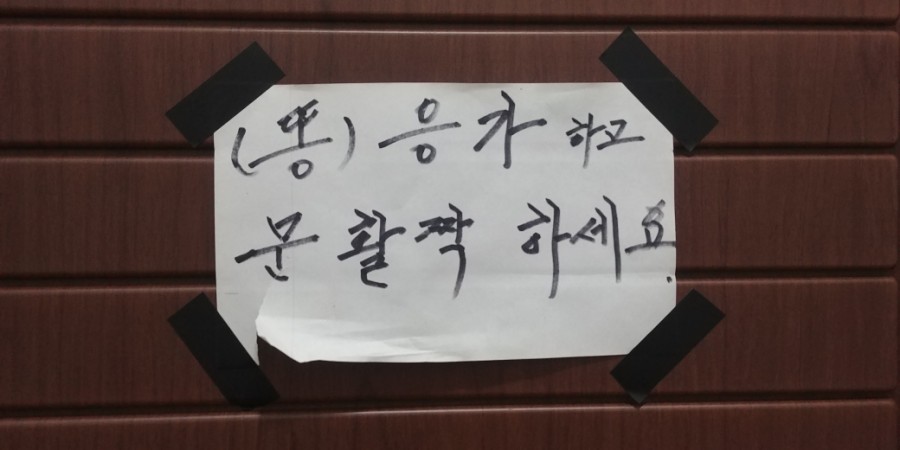 (똥) 응가 하고
문 활짝 하세요.